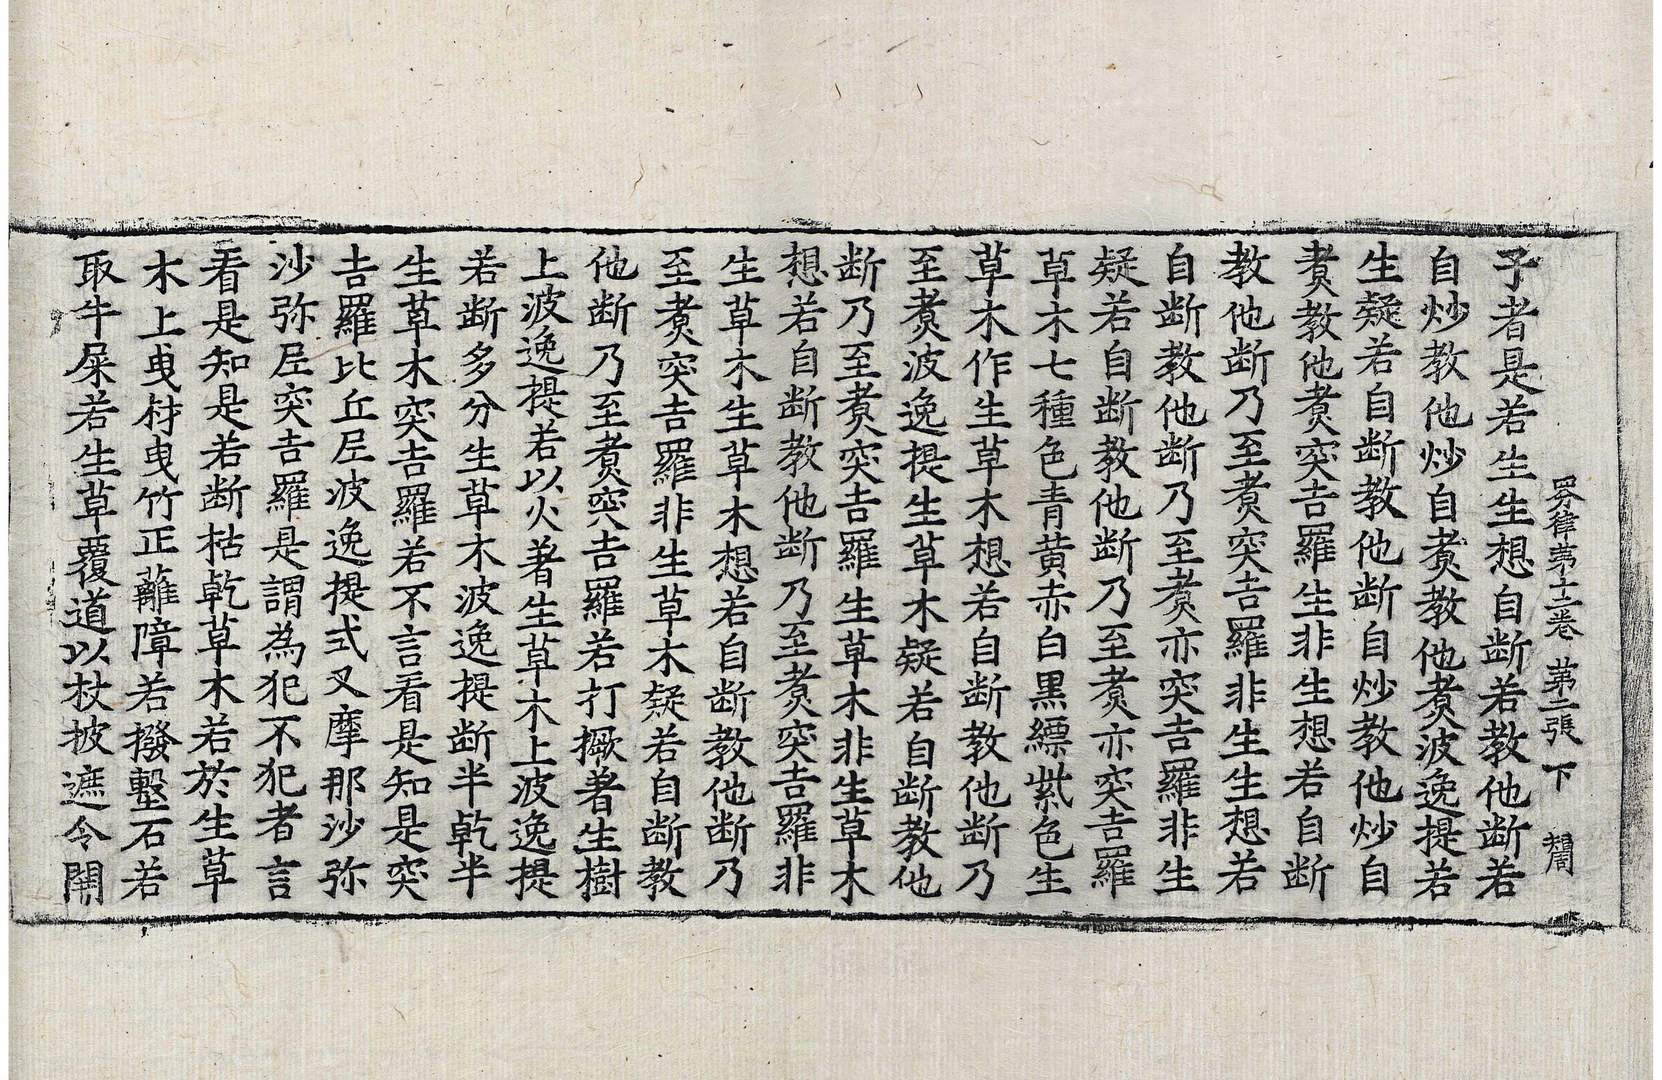 四分律苐十二卷 苐二張 下
子者是若生生想自断若教他断若
自炒教他炒自煑教他煑波逸提若
生疑若自断教他断自炒教他炒自
煑教他煑突吉羅生非生想若自断
教他断乃至煑突吉羅非生生想若
自断教他断乃至煑亦突吉羅非生
疑若自断教他断乃至煑亦突吉羅
草木七種色青黄赤白黒縹紫色生
草木作生草木想若自断教他断乃
至煑波逸提生草木疑若自断教他
断乃至煑突吉羅生草木非生草木
想若自断教他断乃至煑突吉羅非
生草木生草木想若自断教他断乃
至煑突吉羅非生草木疑若自断教
他断乃至煑突吉羅若打橛著生樹
上波逸提若以火著生草木上波逸提
若断多分生草木波逸提断半乾半
生草木突吉羅若不言看是知是突
吉羅比丘尼波逸提式叉摩那沙弥
沙弥尼突吉羅是謂為犯不犯者言
看是知是若断枯乾草木若於生草
木上曳材曳竹正蘺障若撥墼石若
取牛屎若生草覆道以杖披遮令開